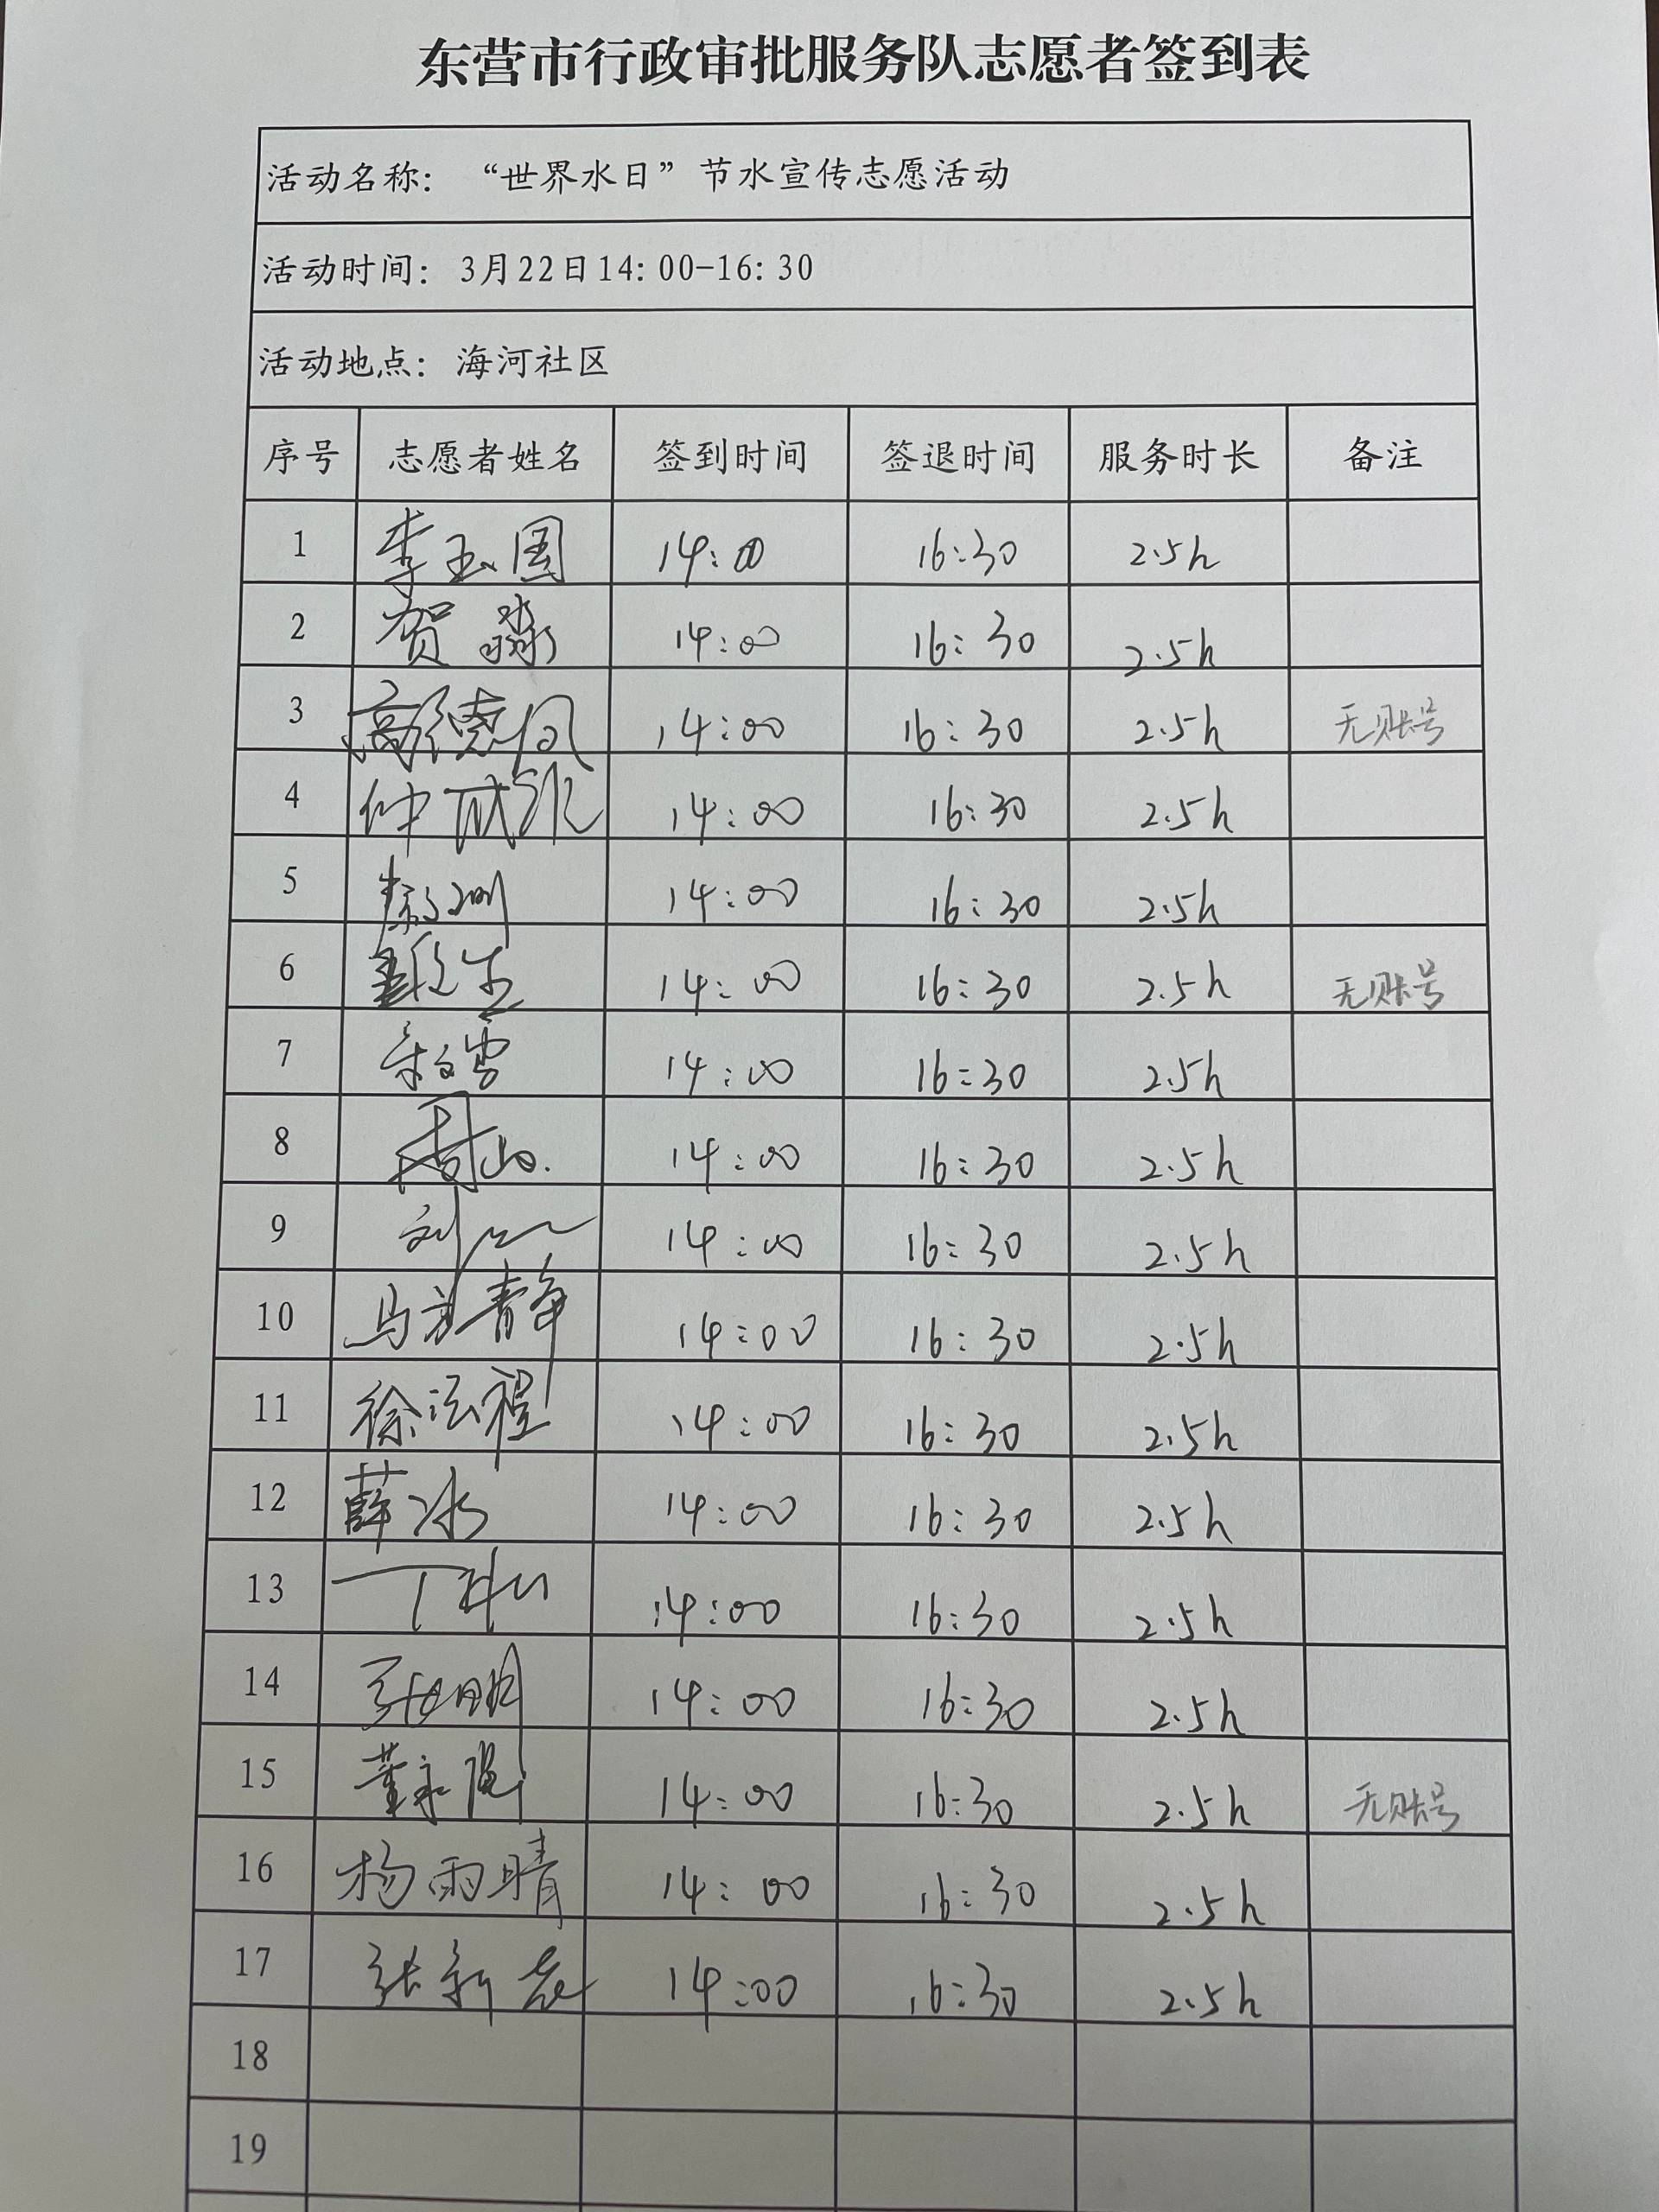 东营市行政审批服务队志愿者签到表
活动名称：“世界水日”节水宣传志愿活动
活动时间：3月22日14：00-16：30
活动地点：海河社区
序号 志愿者姓名 签到时间 签退时间 服务时长 备注
1 李玉国 14:00 16:30 2.5h
2 贺淼 14:00 16:30 2.5h
3 高德民 14:00 16:30 2.5h 无账号
4 仲成 14:00 16:30 2.5h
5 14:00 16:30 2.5h
6 14:00 16:30 2.5h 无账号
7 14:00 16:30 2.5h
8 14:00 16:30 2.5h
9 刘 14:00 16:30 2.5h
10 马 静 14:00 16:30 2.5h
11 徐法程 14:00 16:30 2.5h
12 薛冰 14:00 16:30 2.5h
13 丁 14:00 16:30 2.5h
14 张明 14:00 16:30 2.5h
15 董永 14:00 16:30 2.5h 无账号
16 杨雨晴 14:00 16:30 2.5h
17 张新 14:00 16:30 2.5h
18
19